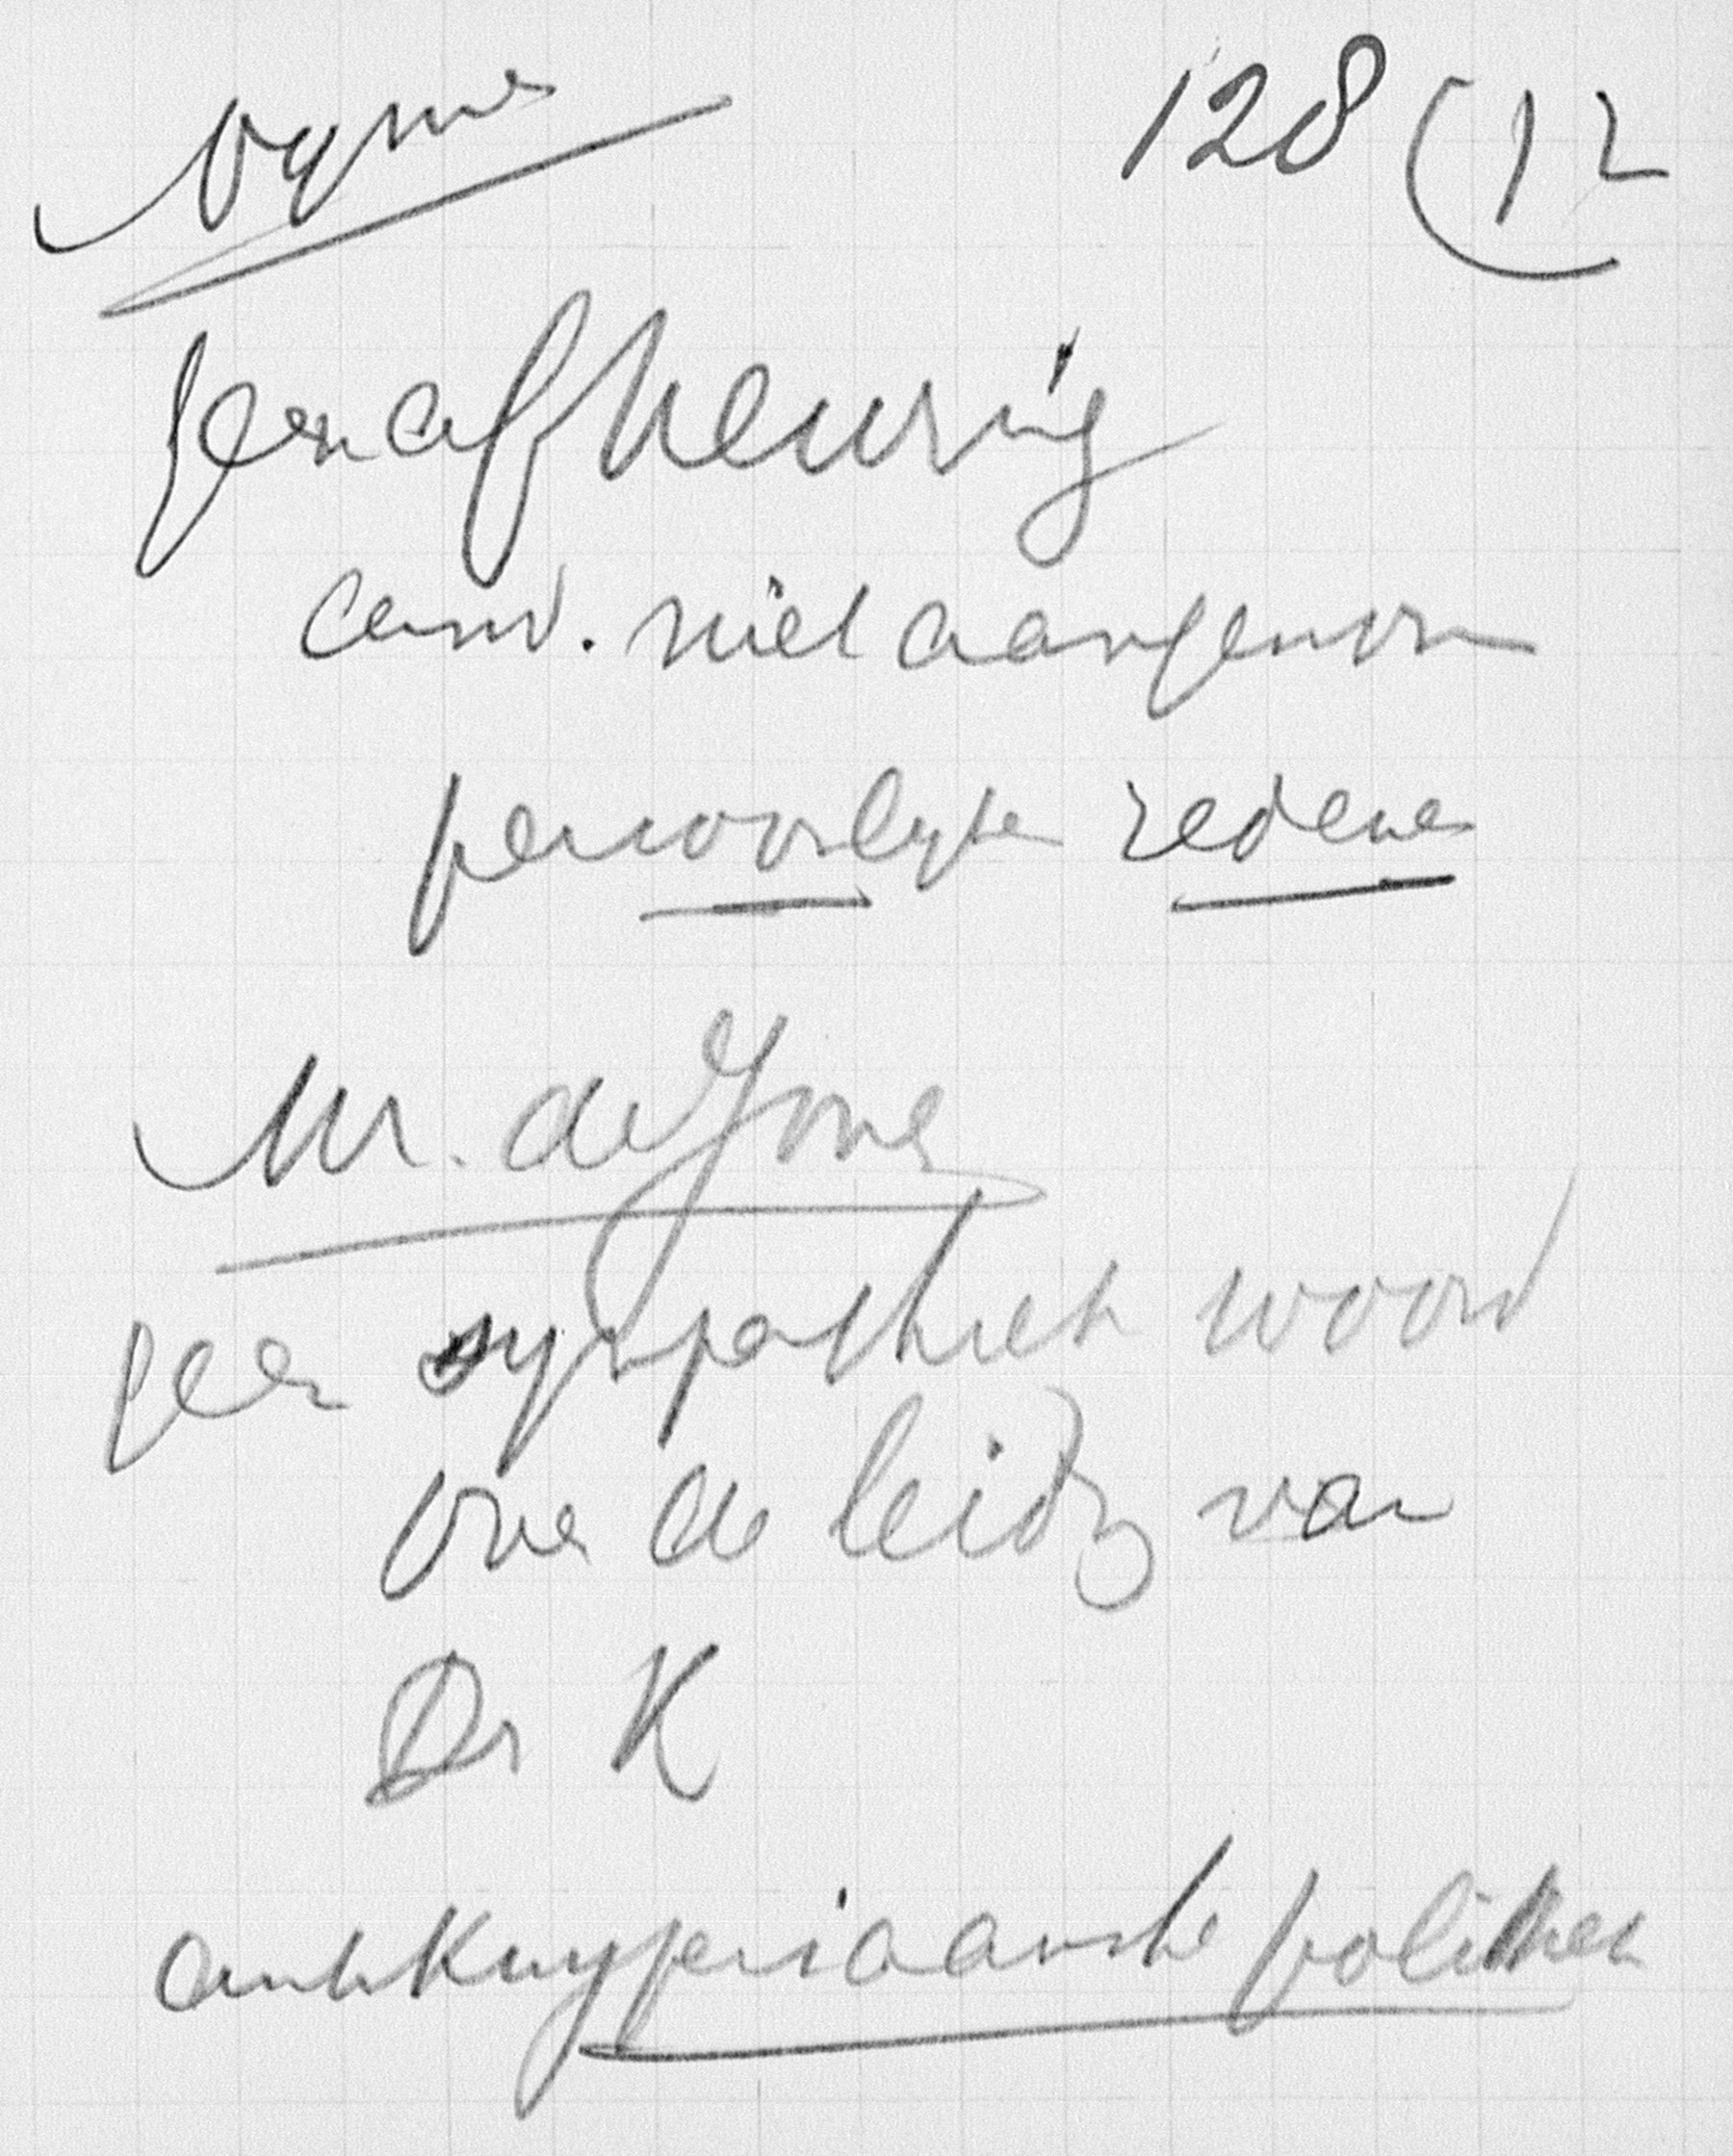 128 (12
geen afkeuring
cand. niet aangenomen
persoonlijke redenen
Mr. de Jong
geen sympathiek woord
over de leidg van
Dr K
antiKuyperiaansche politiek